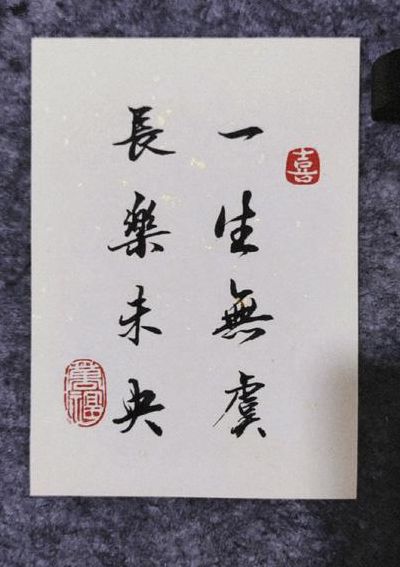 喜
一生無虞
長樂未央
萬福